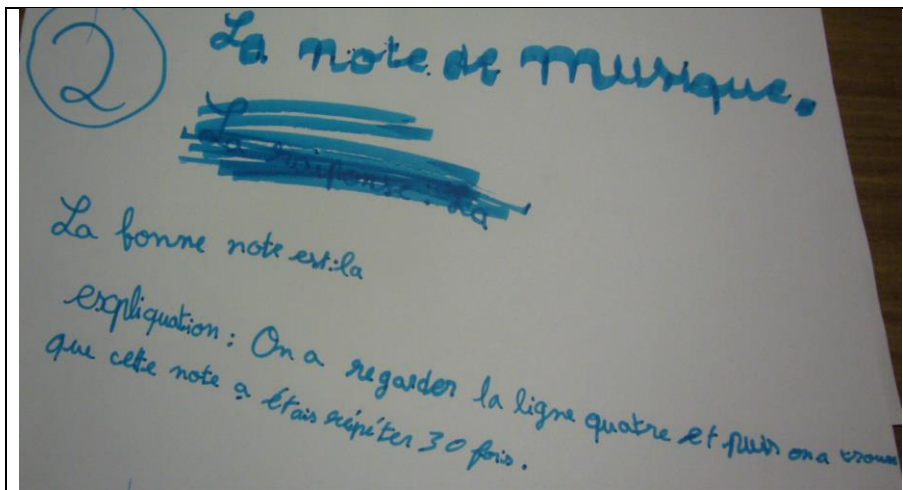 2
La note de musique.
La bonne note est:la
expliquation: On a regarder la ligne quatre et puis on a
que cette note a étais répéter 30 fois.